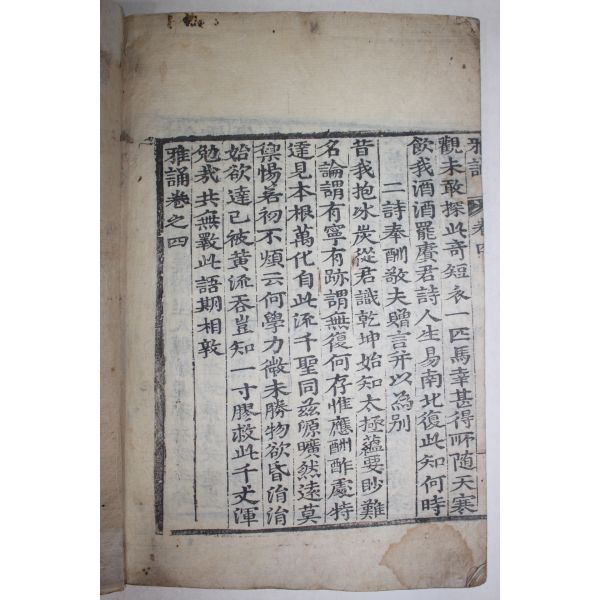 雅誦 卷四
觀未敢探此奇短衣一匹馬幸甚得所隨天寒
飮我酒酒罷賡君詩人生易南北復此知何時
二詩奉酬敬夫贈言并以爲別
昔我抱冰炭從君識乾坤始知太極蘊要眇難
名論謂有寧有跡謂無復何存惟應酬酢處特
達見本根萬化自此流千聖同玆源曠然遠莫
禦惕若初不煩云何學力微未勝物欲昏涓涓
始欲達已被黃流吞豈知一寸膠救此千丈渾
勉我共無斁此語期相敦
雅誦卷之四